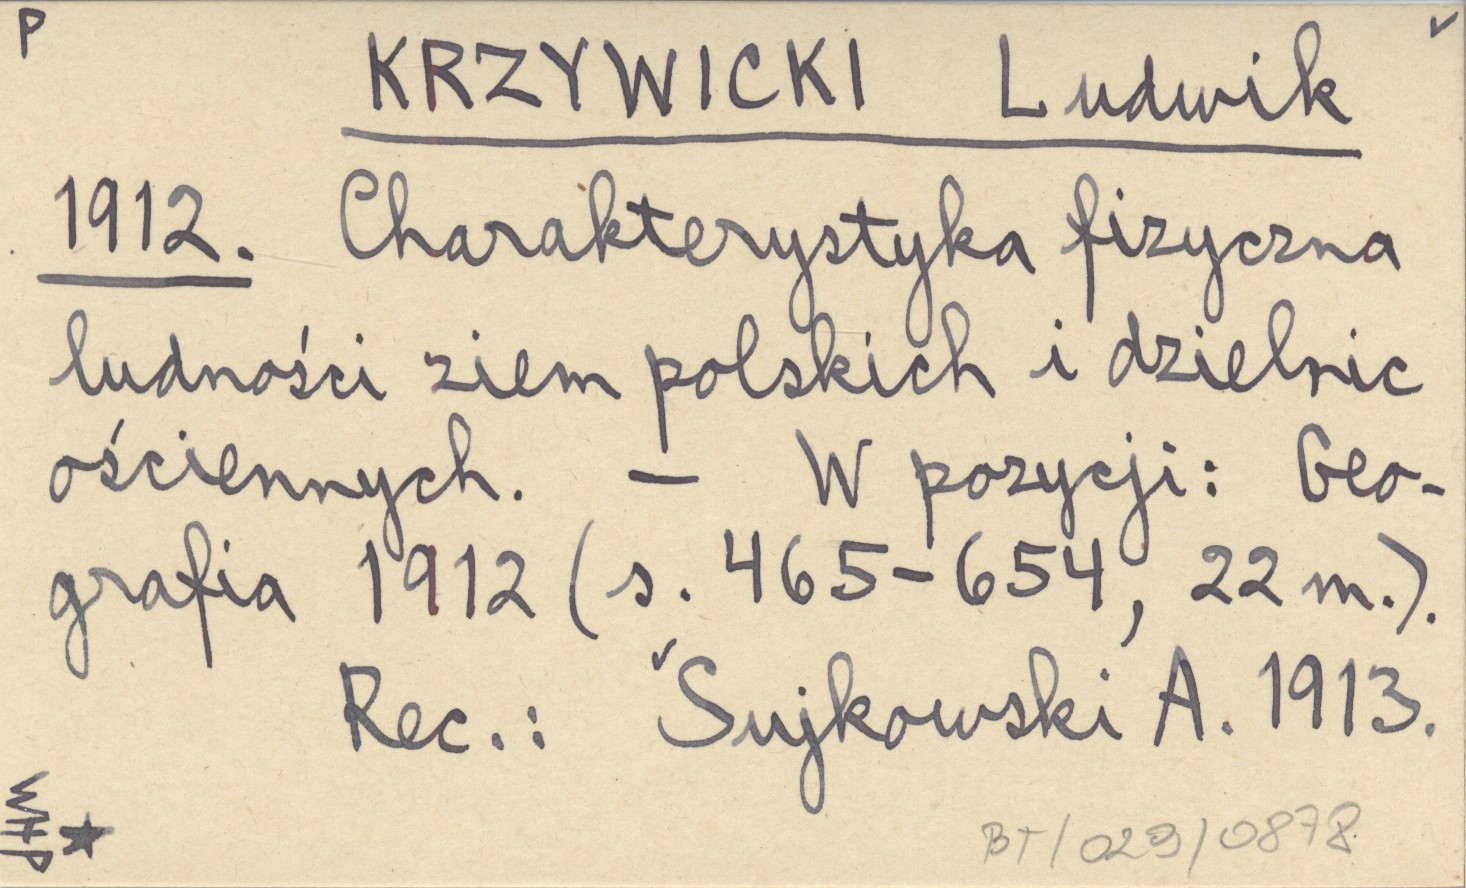 P ✓
KRZYWICKI Ludwik
1912. Charakterystyka fizyczna
ludności ziem polskich i dzielnic
ościennych. — W pozycji: Geo-
grafia 1912 (s. 465-654, 22 m.).
Rec.: ✓Sujkowski A. 1913.
WHP ★
BT/029/0878